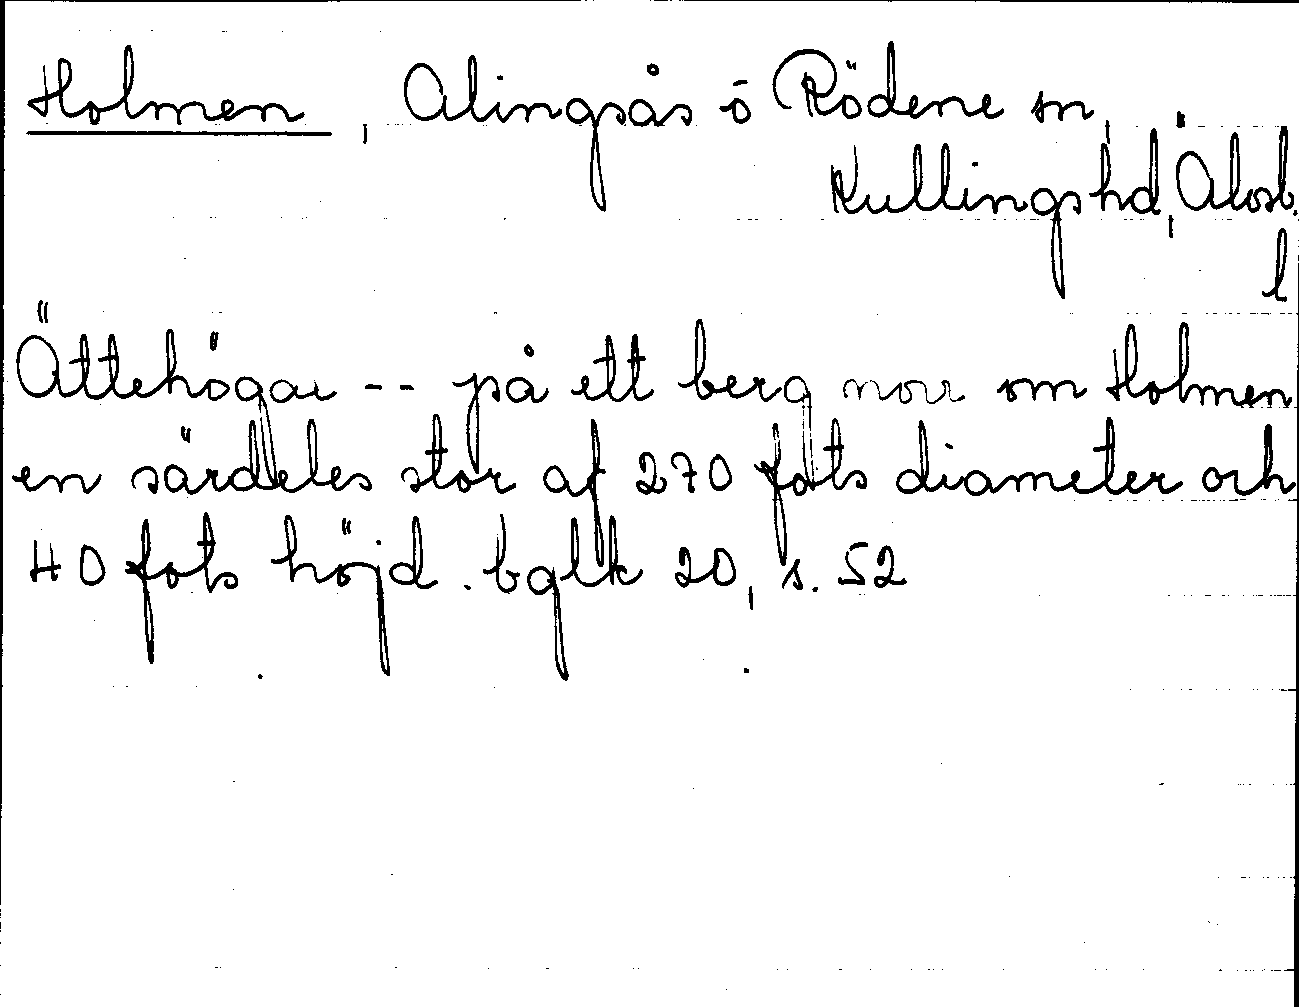 Holmen, Alingsås ö Rödene sn,
Kullingshd, Älvsb.
l
Ättehögar -- på ett berg norr om Holmen
en särdeles stor af 270 fots diameter och
40 fots höjd. bglk 20, s. 52